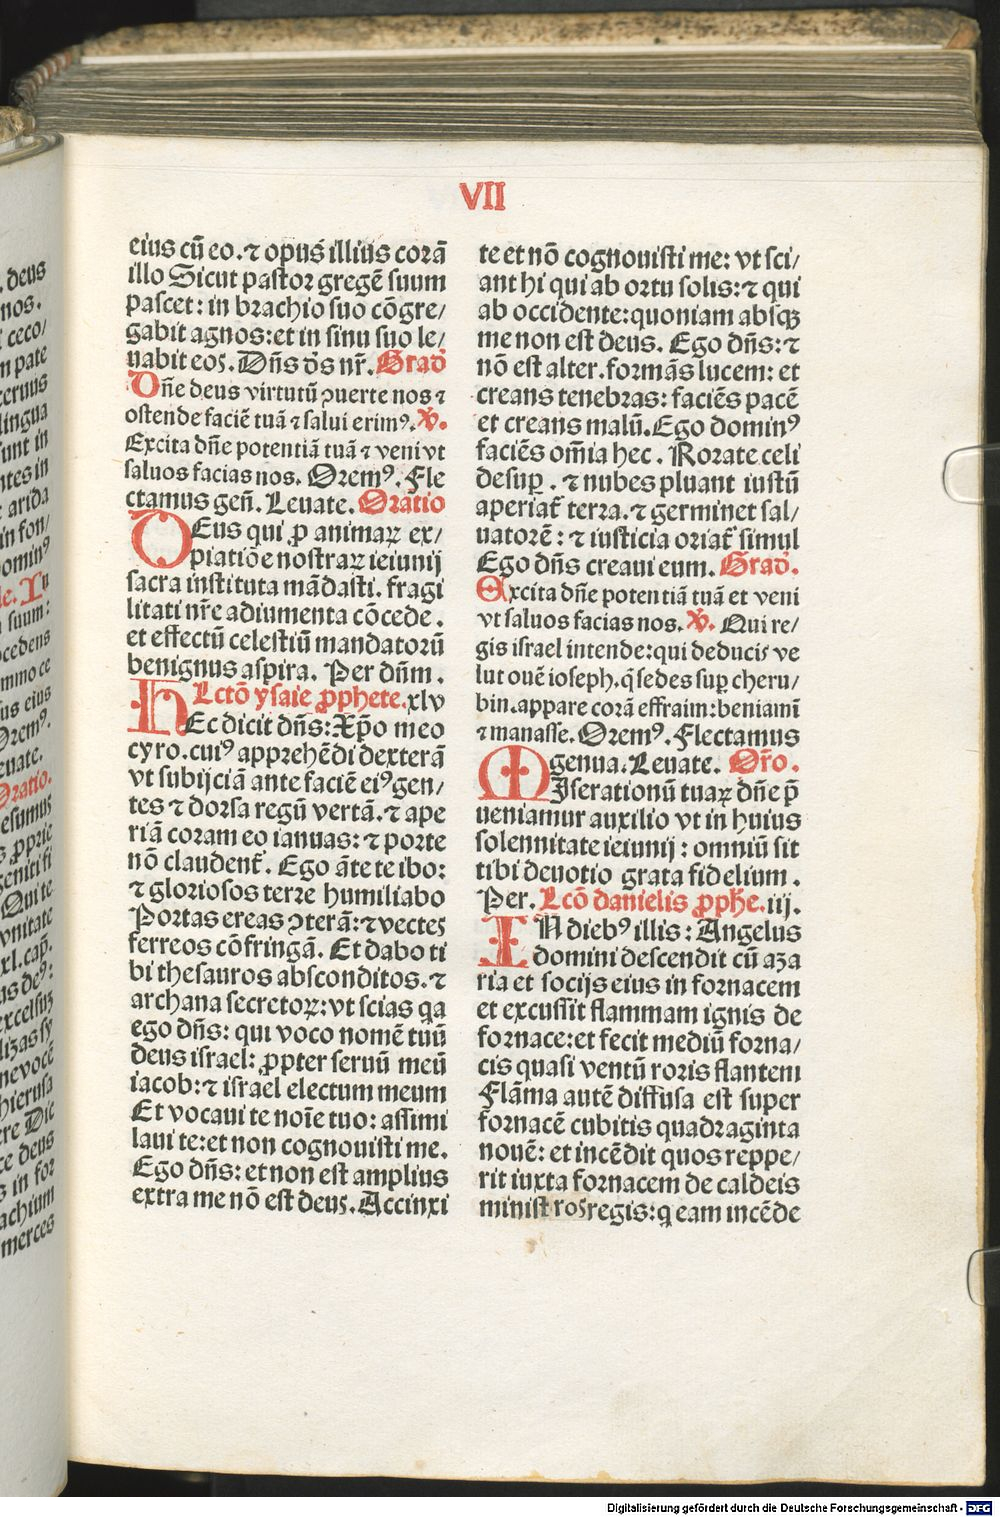 VII
eius cū eo. ⁊ opus illius corā
illo Sicut pastor gregē suum
pascet: in brachio suo cōgre/
gabit agnos: et in sinu suo le/
uabit eos. Dn̄s ds̄ nr̄. Grad᷒
Dn̄e deus virtutū ꝯuerte nos ⁊
ostende faciē tuā ⁊ salui erimꝰ. ℣.
Excita dn̄e potentiā tuā ⁊ veni vt
saluos facias nos. Oremꝰ. Fle
ctamus gen̄. Leuate. Oratio
DEus qui ꝓ animaꝝ ex/
piatiōe nostraꝝ ieiunij
sacra instituta mādasti. fragi
litati nr̄e adiumenta cōcede.
et effectū celestiū mandatorū
benignus aspira. Per dn̄m.
Lctō ysaie ꝓphete. xlv
HEc dicit dn̄s: Xp̄o meo
cyro. cuiꝰ apprehēdi dexterā
vt subijciā ante faciē eiꝰ gen/
tes ⁊ dorsa regū vertā. ⁊ ape
riā coram eo ianuas: ⁊ porte
nō claudent᷑. Ego āte te ibo:
⁊ gloriosos terre humiliabo
Portas ereas ꝯterā: ⁊ vectes
ferreos cōfringā. Et dabo ti
bi thesauros absconditos. ⁊
archana secretoꝝ: vt scias qa
ego dn̄s: qui voco nomē tuū
deus israel: ꝓpter seruū meū
iacob: ⁊ israel electum meum
Et vocaui te noīe tuo: assimi
laui te: et non cognouisti me.
Ego dn̄s: et non est amplius
extra me nō est deus. Accinxi
te et nō cognouisti me: vt sci/
ant hi qui ab ortu solis: ⁊ qui
ab occidente: quoniam absqꝫ
me non est deus. Ego dn̄s: ⁊
nō est alter. formās lucem: et
creans tenebras: faciēs pacē
et creans malū. Ego dominꝰ
faciēs om̄ia hec. Rorate celi
desuꝑ. ⁊ nubes pluant iustū
aperiat᷑ terra. ⁊ germinet sal/
uatorē: ⁊ iusticia oriat᷑ simul
Ego dn̄s creaui eum. Grad᷒.
Excita dn̄e potentiā tuā et veni
vt saluos facias nos. ℣. Qui re/
gis israel intende: qui deducis ve
lut ouē ioseph. q̄ sedes suꝑ cheru/
bin. appare corā effraim: beniamī
⁊ manasse. Oremꝰ. Flectamus
genua. Leuate. Or̄o.
MIserationū tuaꝝ dn̄e p̄
ueniamur auxilio vt in huius
solennitate ieiunij: omniū sit
tibi deuotio grata fidelium.
Per. Lcō danielis ꝓphe. iij.
IN diebꝰ illis: Angelus
domini descendit cū aza
ria et socijs eius in fornacem
et excussit flammam ignis de
fornace: et fecit mediū forna/
cis quasi ventū roris flantem
Flāma autē diffusa est super
fornacē cubitis quadraginta
nouē: et incēdit quos reppe/
rit iuxta fornacem de caldeis
ministros regis: q eam incēde
. deus
nos.
ceco/
n pate
ceruus
lingua
unt in
ntes in
: arida
in fon/
ominꝰ
suum:
cedens
mmo ce
us eius
Oremꝰ.
euate.
Oratio.
esumus
ꝓprie
geniti ti
Qui te
vnitate
xl. cap̄.
us deꝰ:
excelsuꝫ
lizas sy
nevocē
hierusa
ere Die
ce deus
s in for
achium
merces
Digitalisierung gefördert durch die Deutsche Forschungsgemeinschaft - DFG